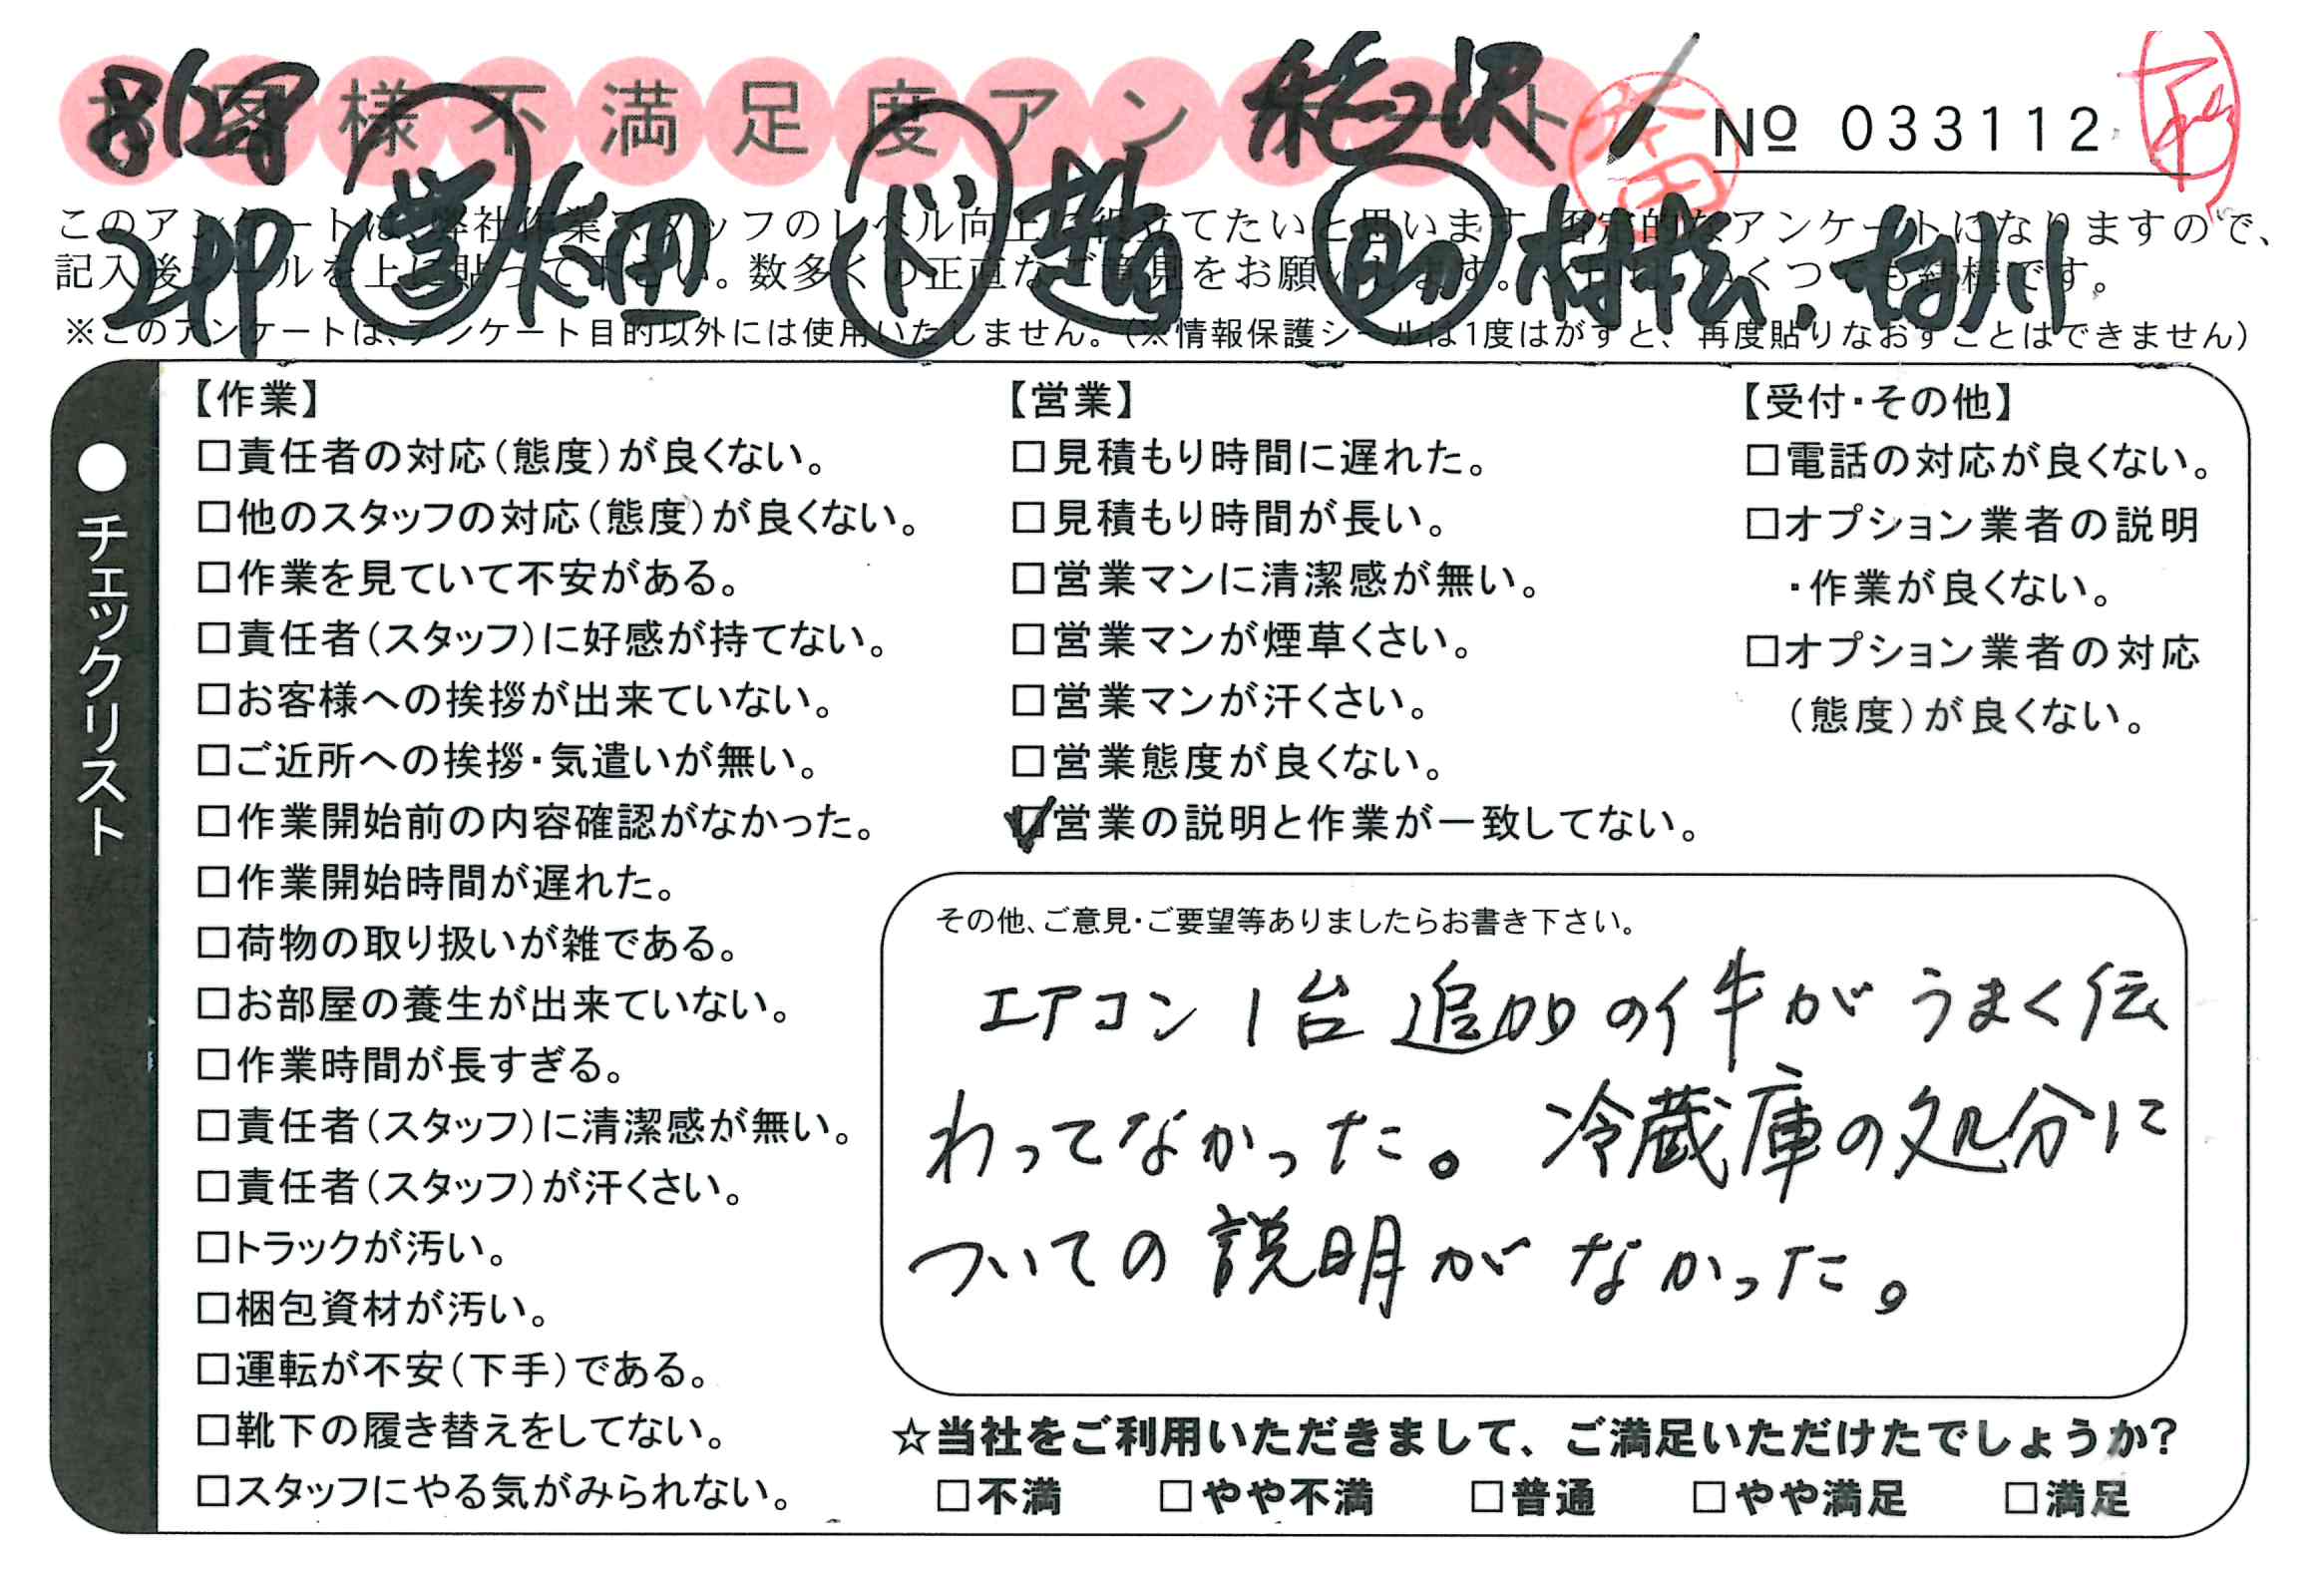 お客様不満足度アンケート
8/29 稲沢
№ 033112
2PP 営 太田 ド 趙 助 村松、古川
このアンケートは、弊社作業スタッフのレベル向上に役立てたいと思います。否定的なアンケートになりますので、
記入後シールを上に貼って下さい。数多くの正直なご意見をお願いします。いくつでも結構です。
※このアンケートは、アンケート目的以外には使用いたしません。（※情報保護シールは1度はがすと、再度貼りなおすことはできません）
●チェックリスト
【作業】
□責任者の対応（態度）が良くない。
□他のスタッフの対応（態度）が良くない。
□作業を見ていて不安がある。
□責任者（スタッフ）に好感が持てない。
□お客様への挨拶が出来ていない。
□ご近所への挨拶・気遣いが無い。
□作業開始前の内容確認がなかった。
□作業開始時間が遅れた。
□荷物の取り扱いが雑である。
□お部屋の養生が出来ていない。
□作業時間が長すぎる。
□責任者（スタッフ）に清潔感が無い。
□責任者（スタッフ）が汗くさい。
□トラックが汚い。
□梱包資材が汚い。
□運転が不安（下手）である。
□靴下の履き替えをしてない。
□スタッフにやる気がみられない。
【営業】
□見積もり時間に遅れた。
□見積もり時間が長い。
□営業マンに清潔感が無い。
□営業マンが煙草くさい。
□営業マンが汗くさい。
□営業態度が良くない。
☑営業の説明と作業が一致してない。
【受付・その他】
□電話の対応が良くない。
□オプション業者の説明
・作業が良くない。
□オプション業者の対応
（態度）が良くない。
その他、ご意見・ご要望等ありましたらお書き下さい。
エアコン1台追加の件がうまく伝
わってなかった。冷蔵庫の処分に
ついての説明がなかった。
☆当社をご利用いただきまして、ご満足いただけたでしょうか？
□不満 □やや不満 □普通 □やや満足 □満足